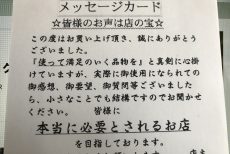 メッセージカード
☆皆様のお声は店の宝☆
この度はお買い上げ頂き、誠にありがとう
ございました。
「使って満足のいく品物を」と真剣に心掛
けていますが、実際に御使用になられての
御感想、御要望、御質問等ございました
ら、小さなことでも結構ですのでお聞かせ
ください。 皆様に
本当に必要とされるお店
を目指しております。
店主